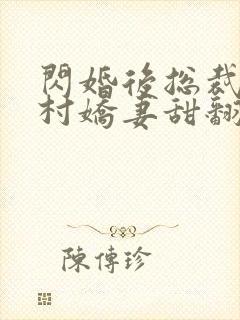 閃婚後總裁
村嬌妻甜翻
陳傳珍